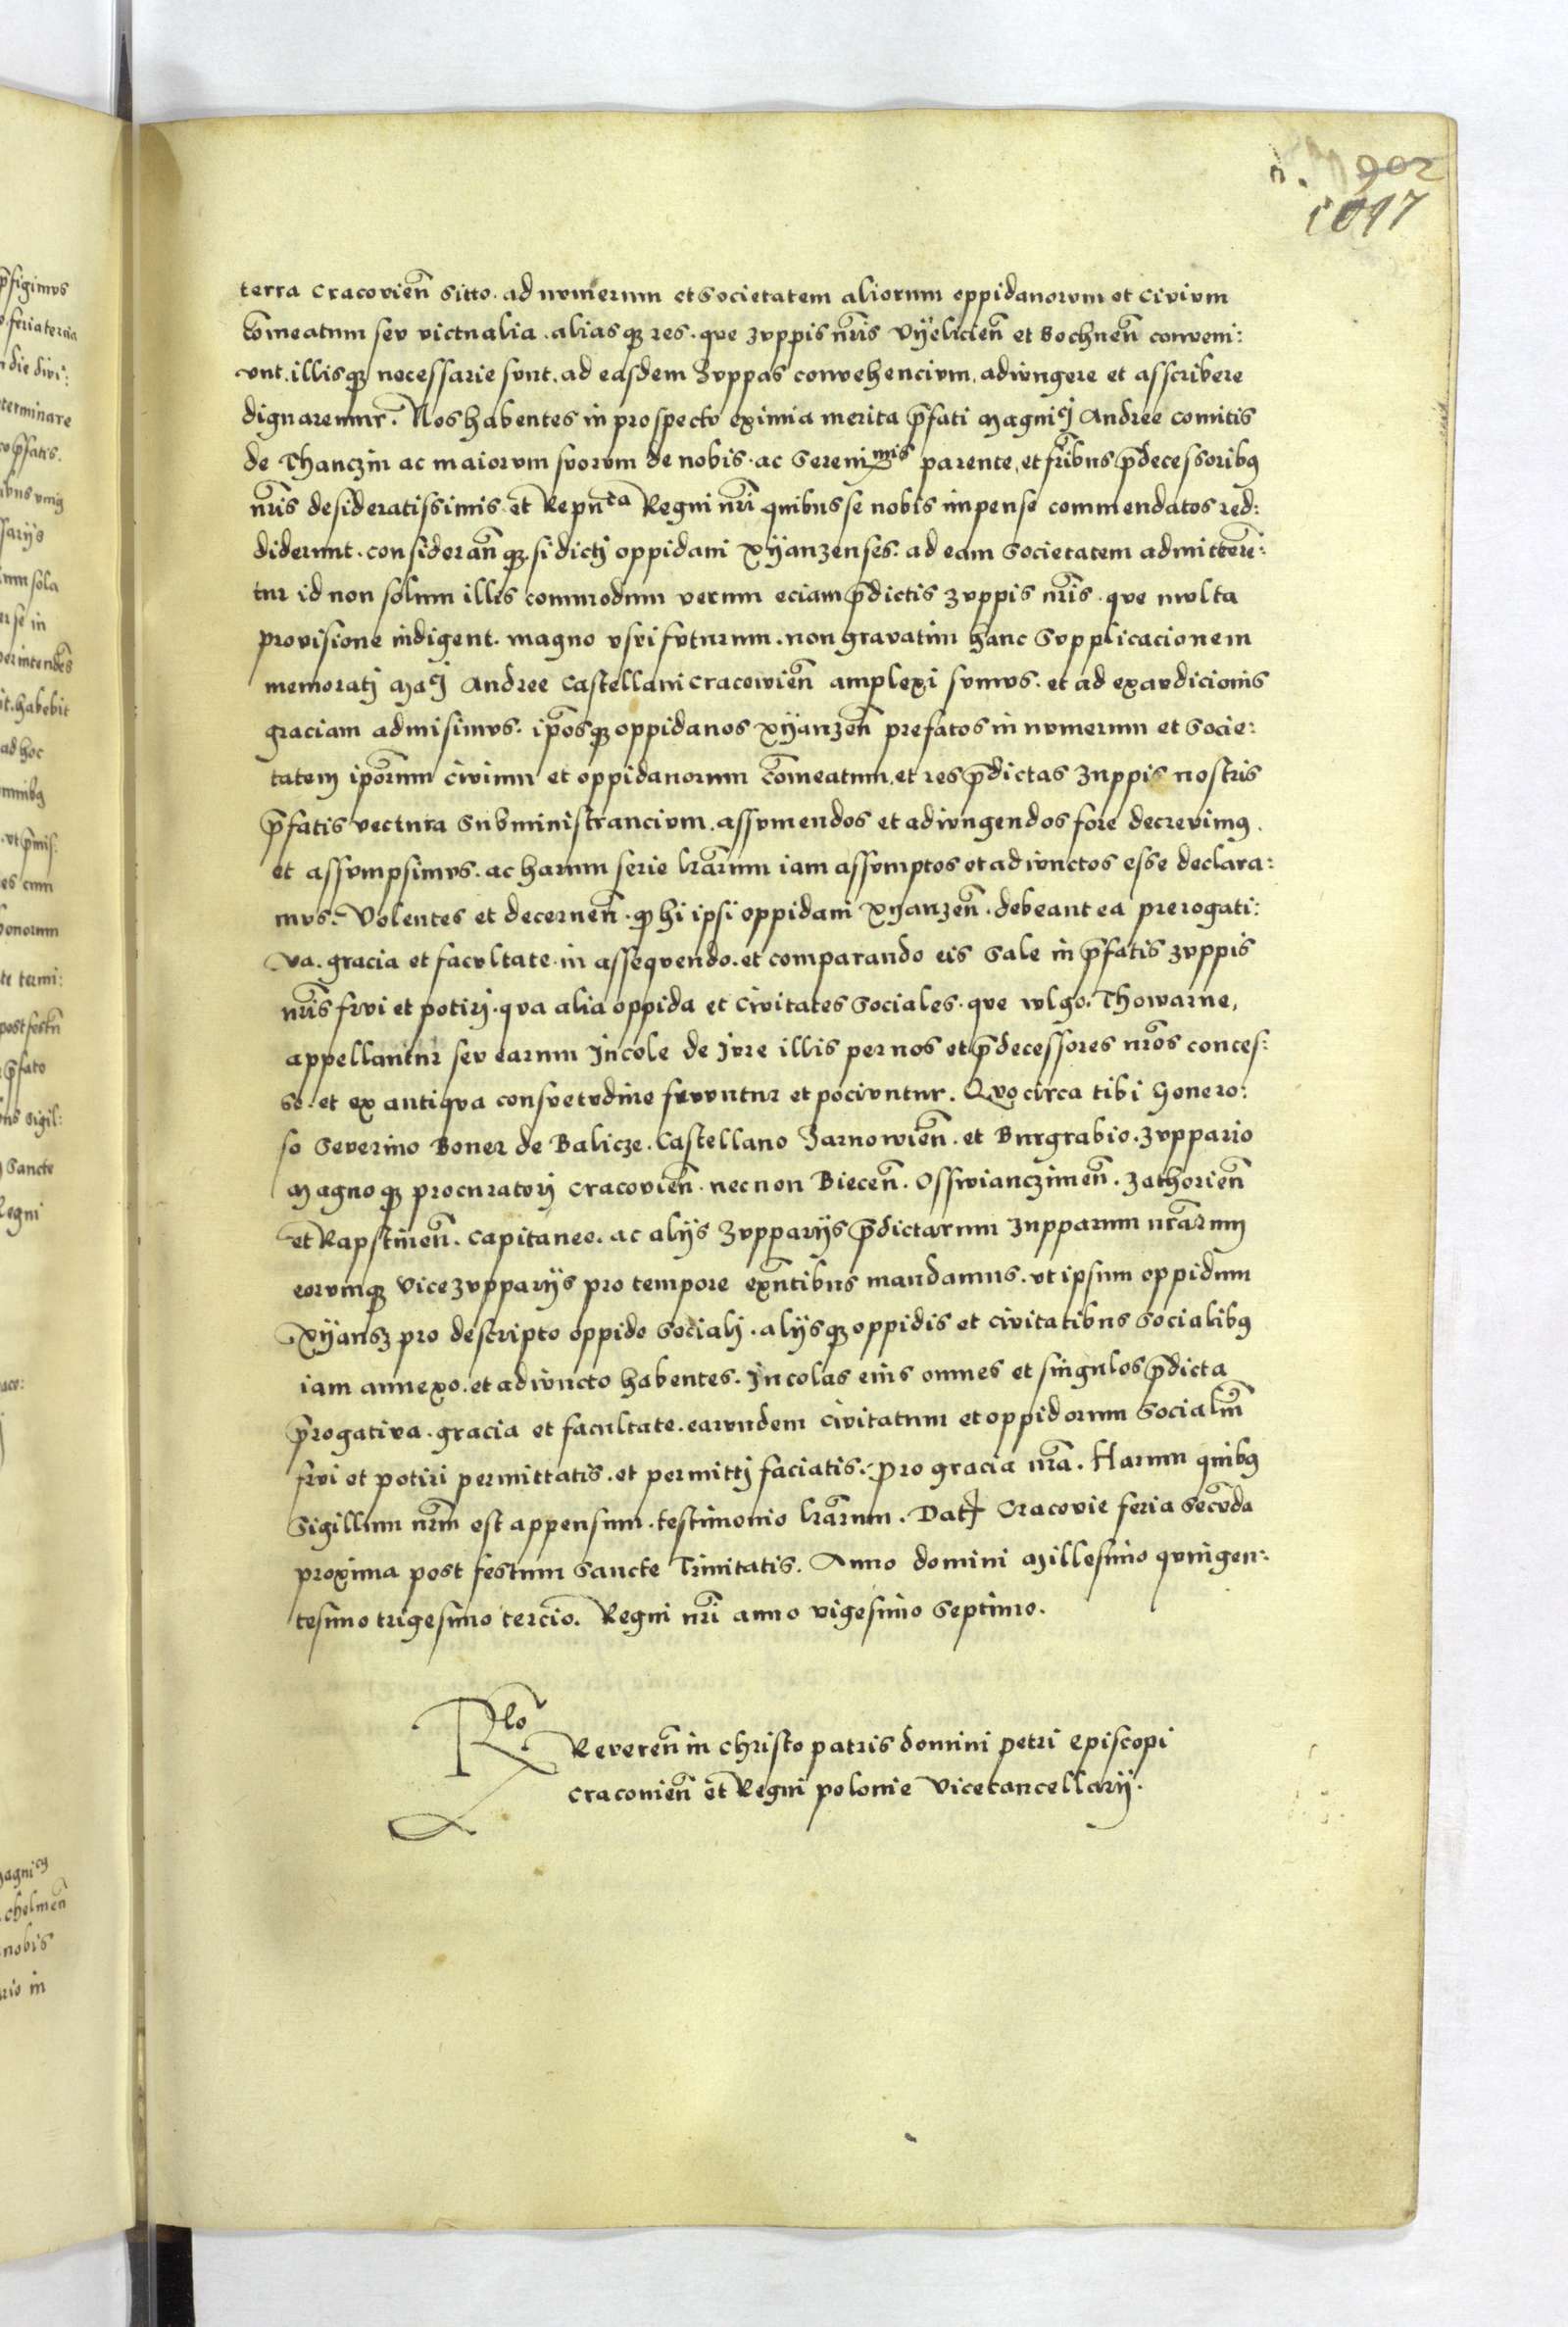 902
1017
terra Cracovien̄ sitto. ad numerum et societatem aliorum oppidanorum et Civium
Com̄eatum seu victualia. aliasqꝫ res. que zuppis nr̄is Vÿelicien̄ et Bochnen̄ conveni:
unt. illisqꝫ necessarie sunt. ad easdem Zuppas convehencium, adiungere et asscribere
dignaremur. Nos habentes in prospectu eximia merita p̄fati Magnicj Andree Comitis
de Thanczin ac maiorum suorum de nobis. ac Serenimis parente, et fr̄ibus p̄decessoribꝯ
nr̄is desideratissimis et Repub̄ca Regni nr̄i quibus se nobis impense commendatos red:
diderunt. consideran̄qꝫ. si dictj oppidani Xÿanzenses. ad eam Societatem admitteren̄:
tur id non solum illis commodum verum eciam p̄dictis zuppis nr̄is. que multa
provisione indigent. magno usui futurum. non gravatim hanc Supplicacionem
memoratj Macj Andree Castellani Cracovien̄ amplexi sumus. et ad exaudicionis
graciam admisimus. ip̄osqꝫ oppidanos Xÿanzen̄ prefatos in numerum et Socie:
tatem ip̄orum civium et oppidanorum Com̄eatum, et res p̄dictas zuppis nostris
p̄fatis vectura Subministrancium. assumendos et adiungendos fore decrevimꝯ.
et assumpsimus. ac harum serie lr̄arum iam assumptos et adiunctos esse declara:
mus. Volentes et decernen̄. qꝫ hi ipsi oppidani Xÿanzen̄. debeant ea prerogati:
va. gracia et facultate. in assequendo. et comparando eis Sale in p̄fatis zuppis
nr̄is frui et potirj. qua alia oppida et Civitates Sociales. que wlgo. Thowarne,
appellantur seu earum Jncole de Jure illis per nos et p̄decessores nr̄os conces:
so. et ex antiqua consuetudine fruuntur et pociuntur. Quocirca tibi Genero:
so Severino Boner de Balicze. Castellano Zarnowien̄. et Burgrabio. Zuppario
Magnoqꝫ procuratorj Cracovien̄. necnon Biecen̄. Osswianczimen̄. Zathorien̄
et Rapstinen̄. Capitaneo. ac alÿs Zupparÿs p̄dictarum Zupparum nr̄arum
eorumqꝫ Vicezupparÿs pro tempore exn̄tibus mandamus. ut ipsum oppidum
Xÿansz pro descripto oppido Socialj. alÿsqꝫ oppidis et civitatibus Socialibꝯ
iam annexo. et adiuncto habentes. Jncolas eius omnes et singulos p̄dicta
p̄rogativa. gracia et facultate. earundem Civitatum et oppidorum Socialiūm
frui et potiri permittatis. et permittj faciatis. pro gracia nr̄a. Harum quibꝯ
Sigillum nr̄m est appensum. testimonio lr̄arum. Datꝭ Cracovie feria Secūda
proxima post festum Sancte Trinitatis. Anno domini Millesimo quingen:
tesimo trigesimo tercio. Regni nr̄i anno vigesimo Septimo.
Rlo
Reveren̄ in Christo patris domini petri Episcopi
Cracovien̄ et Regni polonie Vicecancellarij.